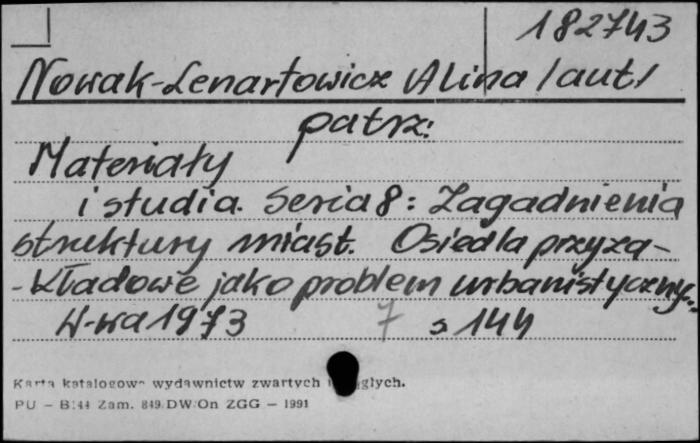 182743
Nowak-Lenartowicz Alina /aut/
patrz:
Materiały
i studia. Seria 8: Zagadnienia
struktury miast. Osiedla przyza-
-kładowe jako problem urbanistyczny..
W-wa 1973 7 s 144
Karta katalogowa wydawnictw zwartych i ciągłych.
PU – B.44 Zam. 849 DW On ZGG – 1991